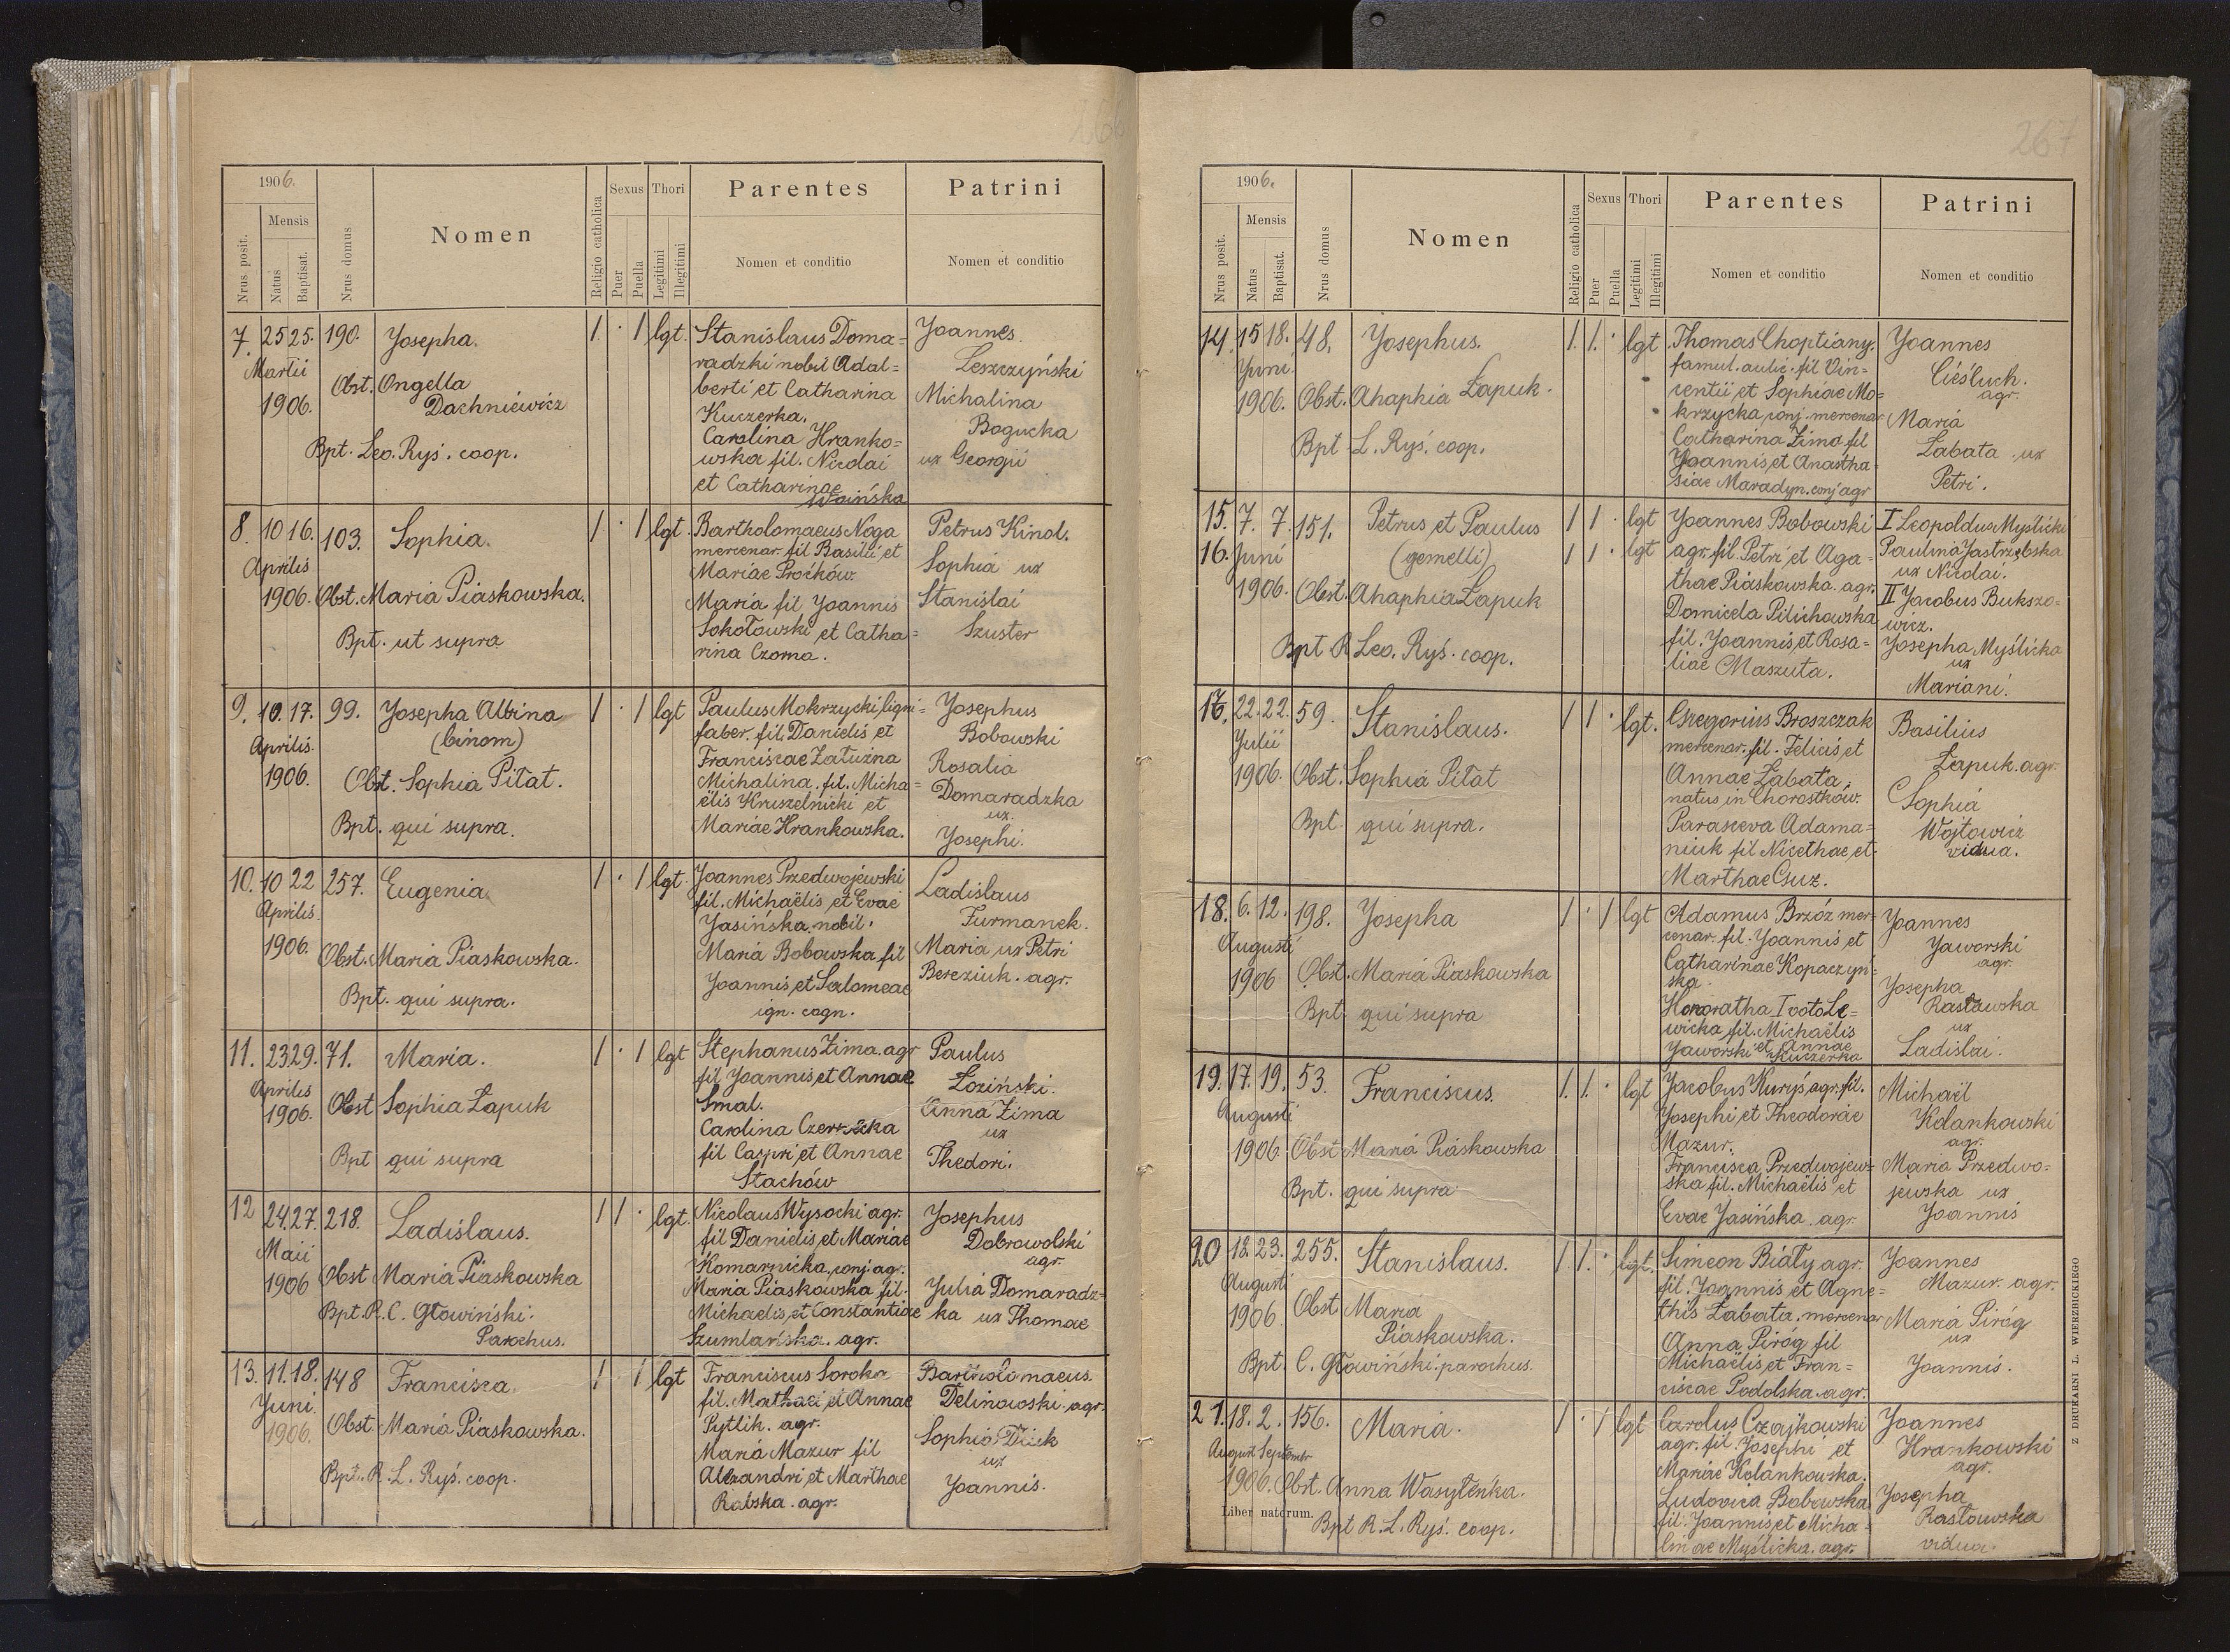 266
1906.
Nrus posit.
Mensis
Natus
Baptisat.
Nrus domus
Nomen
Religio catholica
Sexus
Puer
Puella
Thori
Legitimi
Illegitimi
Parentes
Nomen et conditio
Patrini
Nomen et conditio
7. 25 25. 190. Josepha. 1 · 1 lgt.
Martii
1906.
Obst. Angella
Dachniewicz
Bpt. Leo. Ryś. coop.
Stanislaus Doma=
radzki nobil Adal=
berti et Catharina
Kuczerka.
Carolina Hranko=
wska fil. Nicolai
et Catharinae
Woińska
Joannes.
Leszczyński
Michalina
Bogucka
ux Georgii
8. 10 16. 103. Sophia. 1 · 1 lgt.
Aprilis
1906. Obst. Maria Piaskowska.
Bpt. ut supra
Bartholomaeus Noga
mercenar. fil Basilii et
Mariae Proćków.
Maria fil Joannis
Sokołowski et Catha=
rina Czoma.
Petrus Kinol.
Sophia ux
Stanislai
Szuster
9. 10. 17. 99. Josepha Albina 1 · 1 lgt
(binom)
Aprilis.
1906. Obst. Sophia Pitat.
Bpt. qui supra.
Paulus Mokrzycki, ligni=
faber. fil Danielis et
Franciscae Załużna
Michalina. fil. Micha=
ëlis Kruszelnicki et
Mariae Hrankowska.
Josephus
Bobowski
Rosalia
Domaradzka
ux.
Josephi.
10. 10 22 257. Eugenia. 1 · 1 lgt.
Aprilis.
1906. Obst. Maria Piaskowska.
Bpt. qui supra.
Joannes Przedwojewski
fil. Michaëlis et Evae
Jasińska. nobil.
Maria Bobowska fil
Joannis et Salomeae
ign. cogn.
Ladislaus
Furmanek.
Maria ux Petri
Bereziuk. agr.
11. 23 29. 71. Maria. 1 · 1 lgt
Aprilis
1906. Obst Sophia Łapuk
Bpt qui supra
Stephanus Zima. agr
fil Joannis et Annae
Smal.
Carolina
fil Caspri et Annae
Stachów
Paulus
Łoziński.
Anna Zima
ux
Thedori.
12 24. 27. 218. Ladislaus. 1 1 · lgt.
Maii
1906 Obst Maria Piaskowska
Bpt. R. C. Głowiński.
Parochus.
Nicolaus Wysocki agr.
fil Danielis et Mariae
Komarnicka, conj. agr.
Maria Piaskowska fil.
Michaelis et Constantiae
Szumlańska. agr.
Josephus
Dobrowolski
agr.
Julia Domaradz=
ka ux Thomae
13. 11. 18. 148 Francisca. 1 · 1 lgt
Juni.
1906. Obst. Maria Piaskowska.
Bpt. R. L. Ryś. coop.
Franciscus Soroka
fil. Mathaei et Annae
Pytlik. agr.
Maria Mazur fil
Alexandri et Marthae
Rabska. agr.
Bartholomaeus.
Delinowski. agr.
Sophia Dziek
ux
Joannis.
267
1906.
Nrus posit.
Mensis
Natus
Baptisat.
Nrus domus
Nomen
Religio catholica
Sexus
Puer
Puella
Thori
Legitimi
Illegitimi
Parentes
Nomen et conditio
Patrini
Nomen et conditio
14. 15 18. 48. Josephus. 1. 1. · lgt
Juni.
1906. Obst. Ahaphia Łapuk.
Bpt. L. Ryś. coop.
Thomas Choptiany.
famul. aulic. fil Vin=
centii et Sophiae Mo=
krzycka, conj. mercenar.
Catharina Zima fil
Joannis et Anastha=
siae Maradyn. conj agr
Joannes
Cieśluch.
agr.
Maria
Łabata. ux
Petri.
15. 7. 7. 151. Petrus et Paulus 1 1 · lgt
16. Juni (gemelli) 1 1 · lgt
1906. Obst. Ahaphia Łapuk
Bpt R Leo. Ryś. coop.
Joannes Bobowski
agr. fil. Petri et Aga=
thae Piaskowska. agr.
Domicela Pilichowska
fil. Joannis et Rosa=
liae Maszuta.
I Leopoldus Myślicki
Paulina Jastrzębska
ux Nicolai.
II Jacobus Bukszo=
wicz.
Josepha Myślicka
ux
Mariani.
17. 22. 22. 59. Stanislaus. 1 1 · lgt.
Julii
1906. Obst. Sophia Pitat
Bpt. qui supra.
Gregorius Broszczak
mercenar. fil. Felicis et
Annae Łabata,
natus in Chorostków.
Parasceva Adama=
niuk fil Nicethae et
Marthae Csuz.
Basilius
Łapuk. agr.
Sophia
Wojtowicz
vidua.
18. 6. 12. 198. Josepha 1 · 1 lgt
Augusti
1906 Obst. Maria Piaskowska
Bpt. qui supra
Adamus Brzóz mer=
cenar. fil. Joannis et
Catharinae Kopaczyń=
ska.
Honoratha I voto Le=
wicka, fil. Michaëlis
Jaworski et Annae
Kuczerka
Joannes
Jaworski
agr.
Josepha
Rastawska
ux
Ladislai.
19. 17. 19. 53. Franciscus. 1. 1. · lgt
Augusti
1906 Obst Maria Piaskowska
Bpt. qui supra
Jacobus Kuryś agr. fil.
Josephi et Theodorae
Mazur.
Francisca Przedwojew=
ska fil. Michaëlis et
Evae Jasińska. agr.
Michaël
Kolankowski
agr.
Maria Przedwo=
jewska ux
Joannis
20 18. 23. 255. Stanislaus. 1. 1. · lgt.
Augusti
1906 Obst Maria
Piaskowska.
Bpt. C. Głowiński. parochus.
Simeon Biały agr.
fil. Joannis et Agne=
this Łabata. mercenar
Anna Piróg fil
Michaëlis et Fran=
ciscae Podolska. agr.
Joannes
Mazur. agr.
Maria Piróg
ux
Joannis.
21. 18. 2. 156. Maria. 1 · 1 lgt
August Septembr
1906. Obst. Anna Wasyleńka.
Bpt R. L. Ryś. coop.
Carolus Czajkowski
agr. fil. Josephi et
Mariae Kolankowska.
Ludovica Bobowska.
fil. Joannis et Micha=
linae Myślicka. agr.
Joannes
Hrankowski
agr.
Josepha
Rastawska
vidua.
Liber natorum.
Z DRUKARNI L. WIERZBICKIEGO